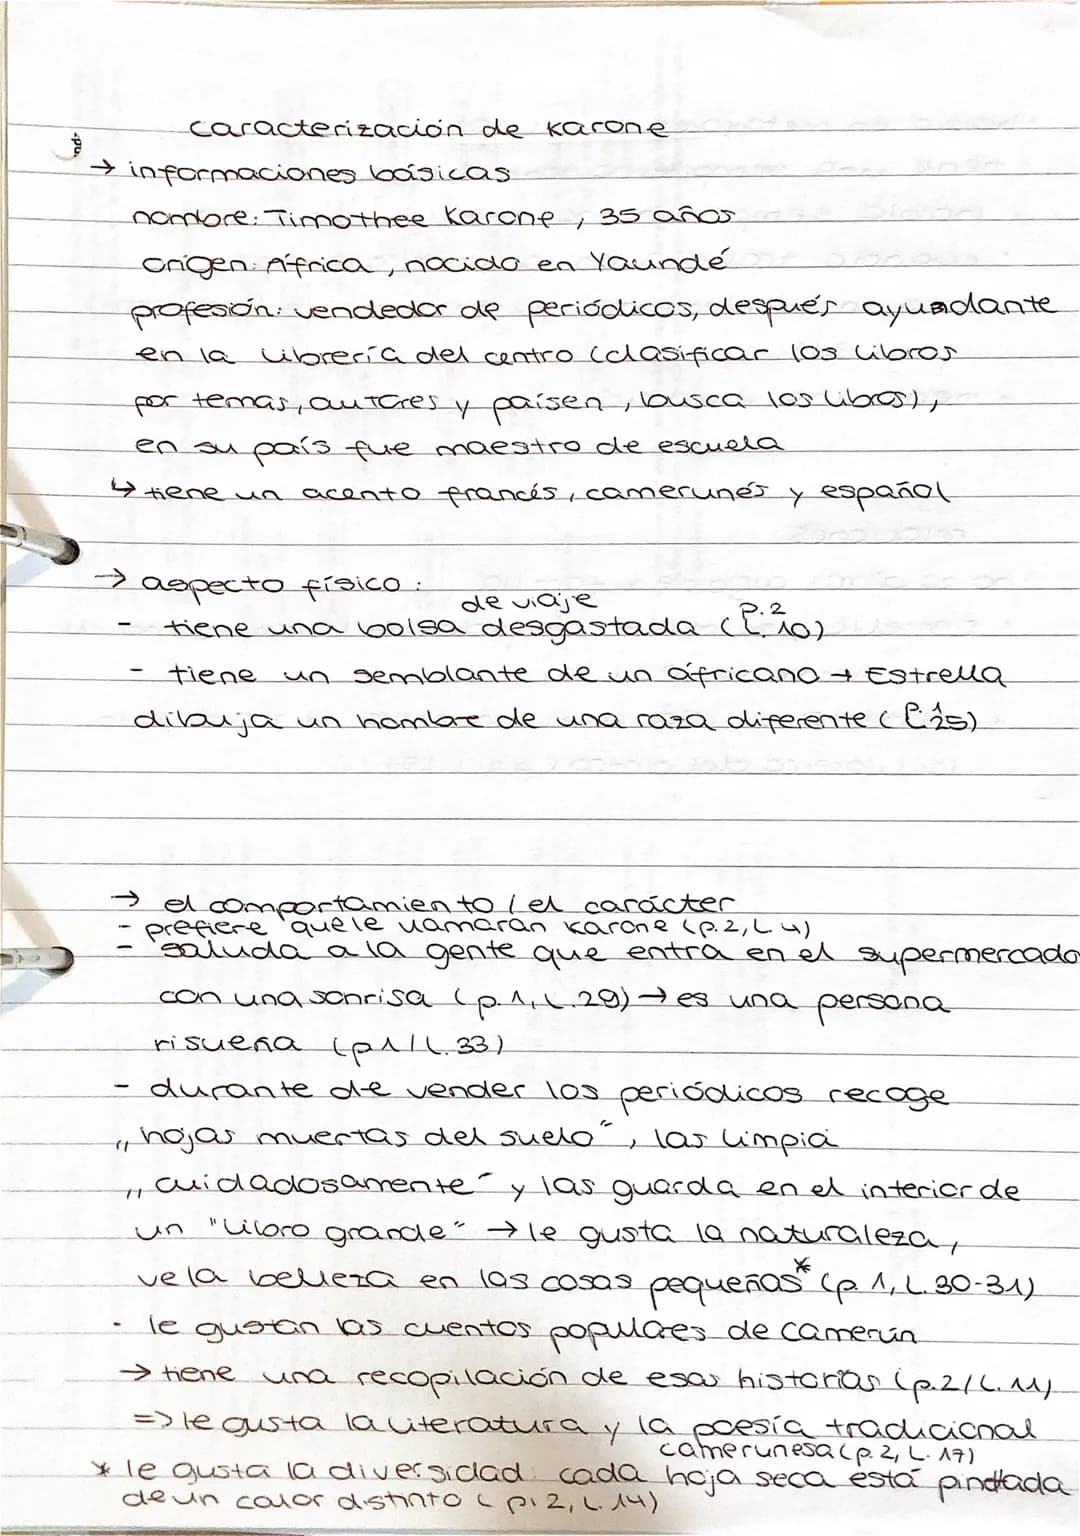 caracterización de Karone
→ informaciones básicas
nombre: Timothee Karone, 35 años
origen: África, nocido en Yaundé
profesión: vendedor de periódicos, después ayudante
en la librería del centro (clasificar los libros
por temas, autores y paísen, busca los libros),
en su país fue maestro de escuela
↳ tiene un acento francés, camerunés y español
→ aspecto físico:
de viaje
- tiene una bolsa desgastada (p. 2 L. 10)
- tiene un semblante de un áfricano → Estrella
dibuja un hombre de una raza diferente (
→ el comportamiento / el carácter
- prefiere que le llamaran Karone (p. 2, L 4)
- saluda a la gente que entra en el supermercado
con una sonrisa (p. 1, L. 29) → es una persona
risueña (p1/L. 33)
- durante de vender los periódicos recoge
„hojas muertas del suelo“, las limpia
„cuidadosamente“ y las guarda en el interior de
un "libro grande“ → le gusta la naturaleza,
ve la belleza en las cosas pequeñas* (p. 1, L. 30-31)
- le gustan las cuentos populares de camerún
→ tiene una recopilación de esas historias (p.2/L. 11)
=> le gusta la literatura y la poesía tradicional
camerunesa (p. 2, L. 17)
* le gusta la diversidad: cada hoja seca está pindtada
de un color distinto (p. 2, L. 14)